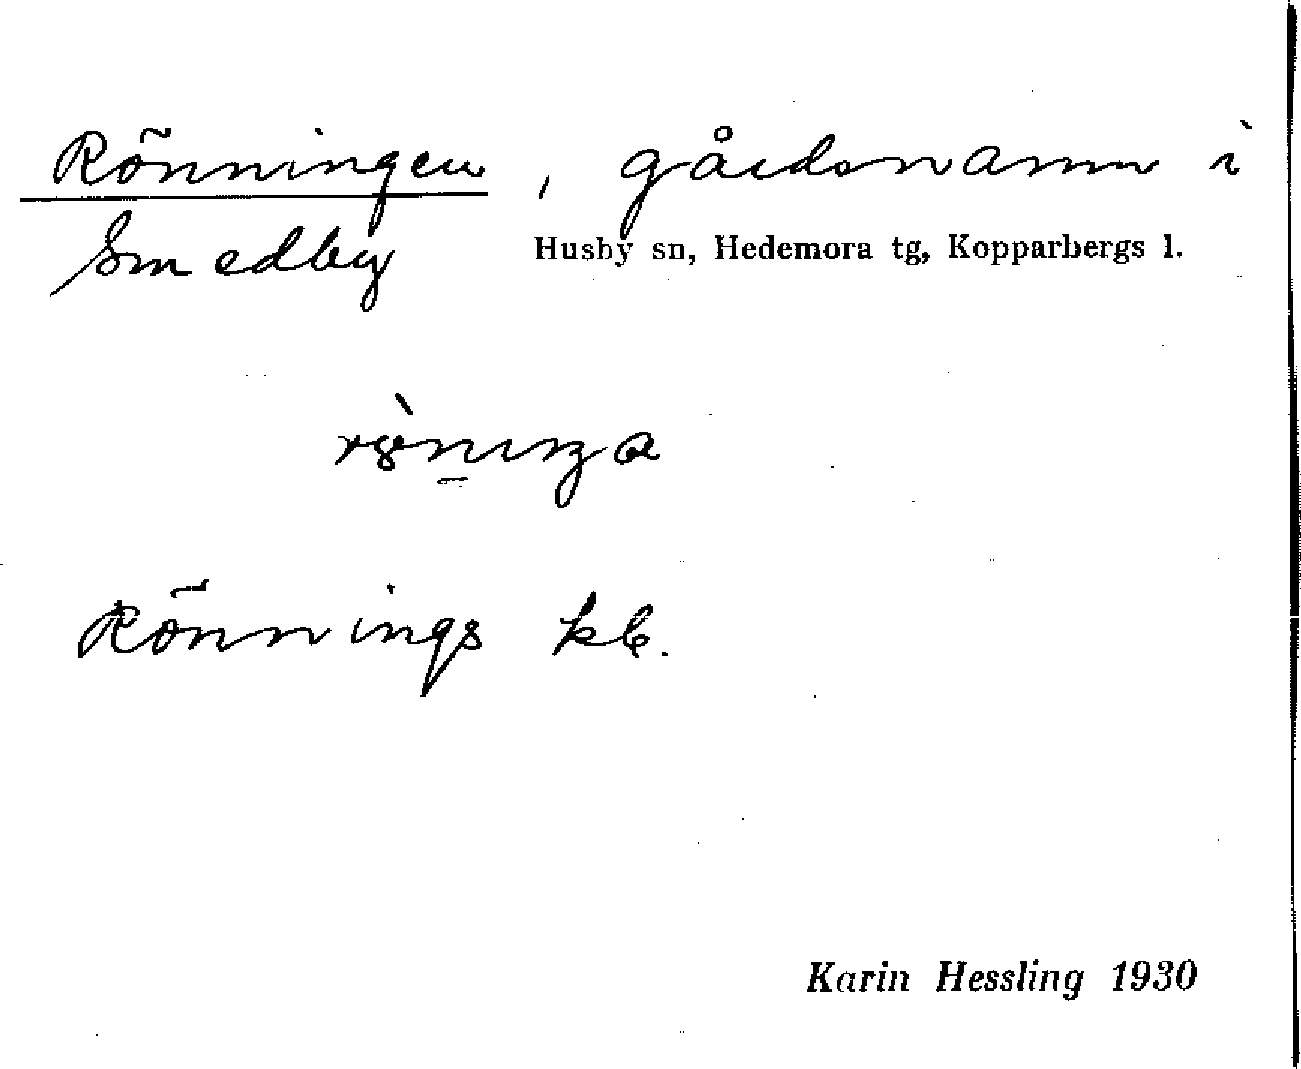 Rönningen, gårdsnamn i
Smedby Husby sn, Hedemora tg, Kopparbergs l.
Rönnings kb.
Karin Hessling 1930